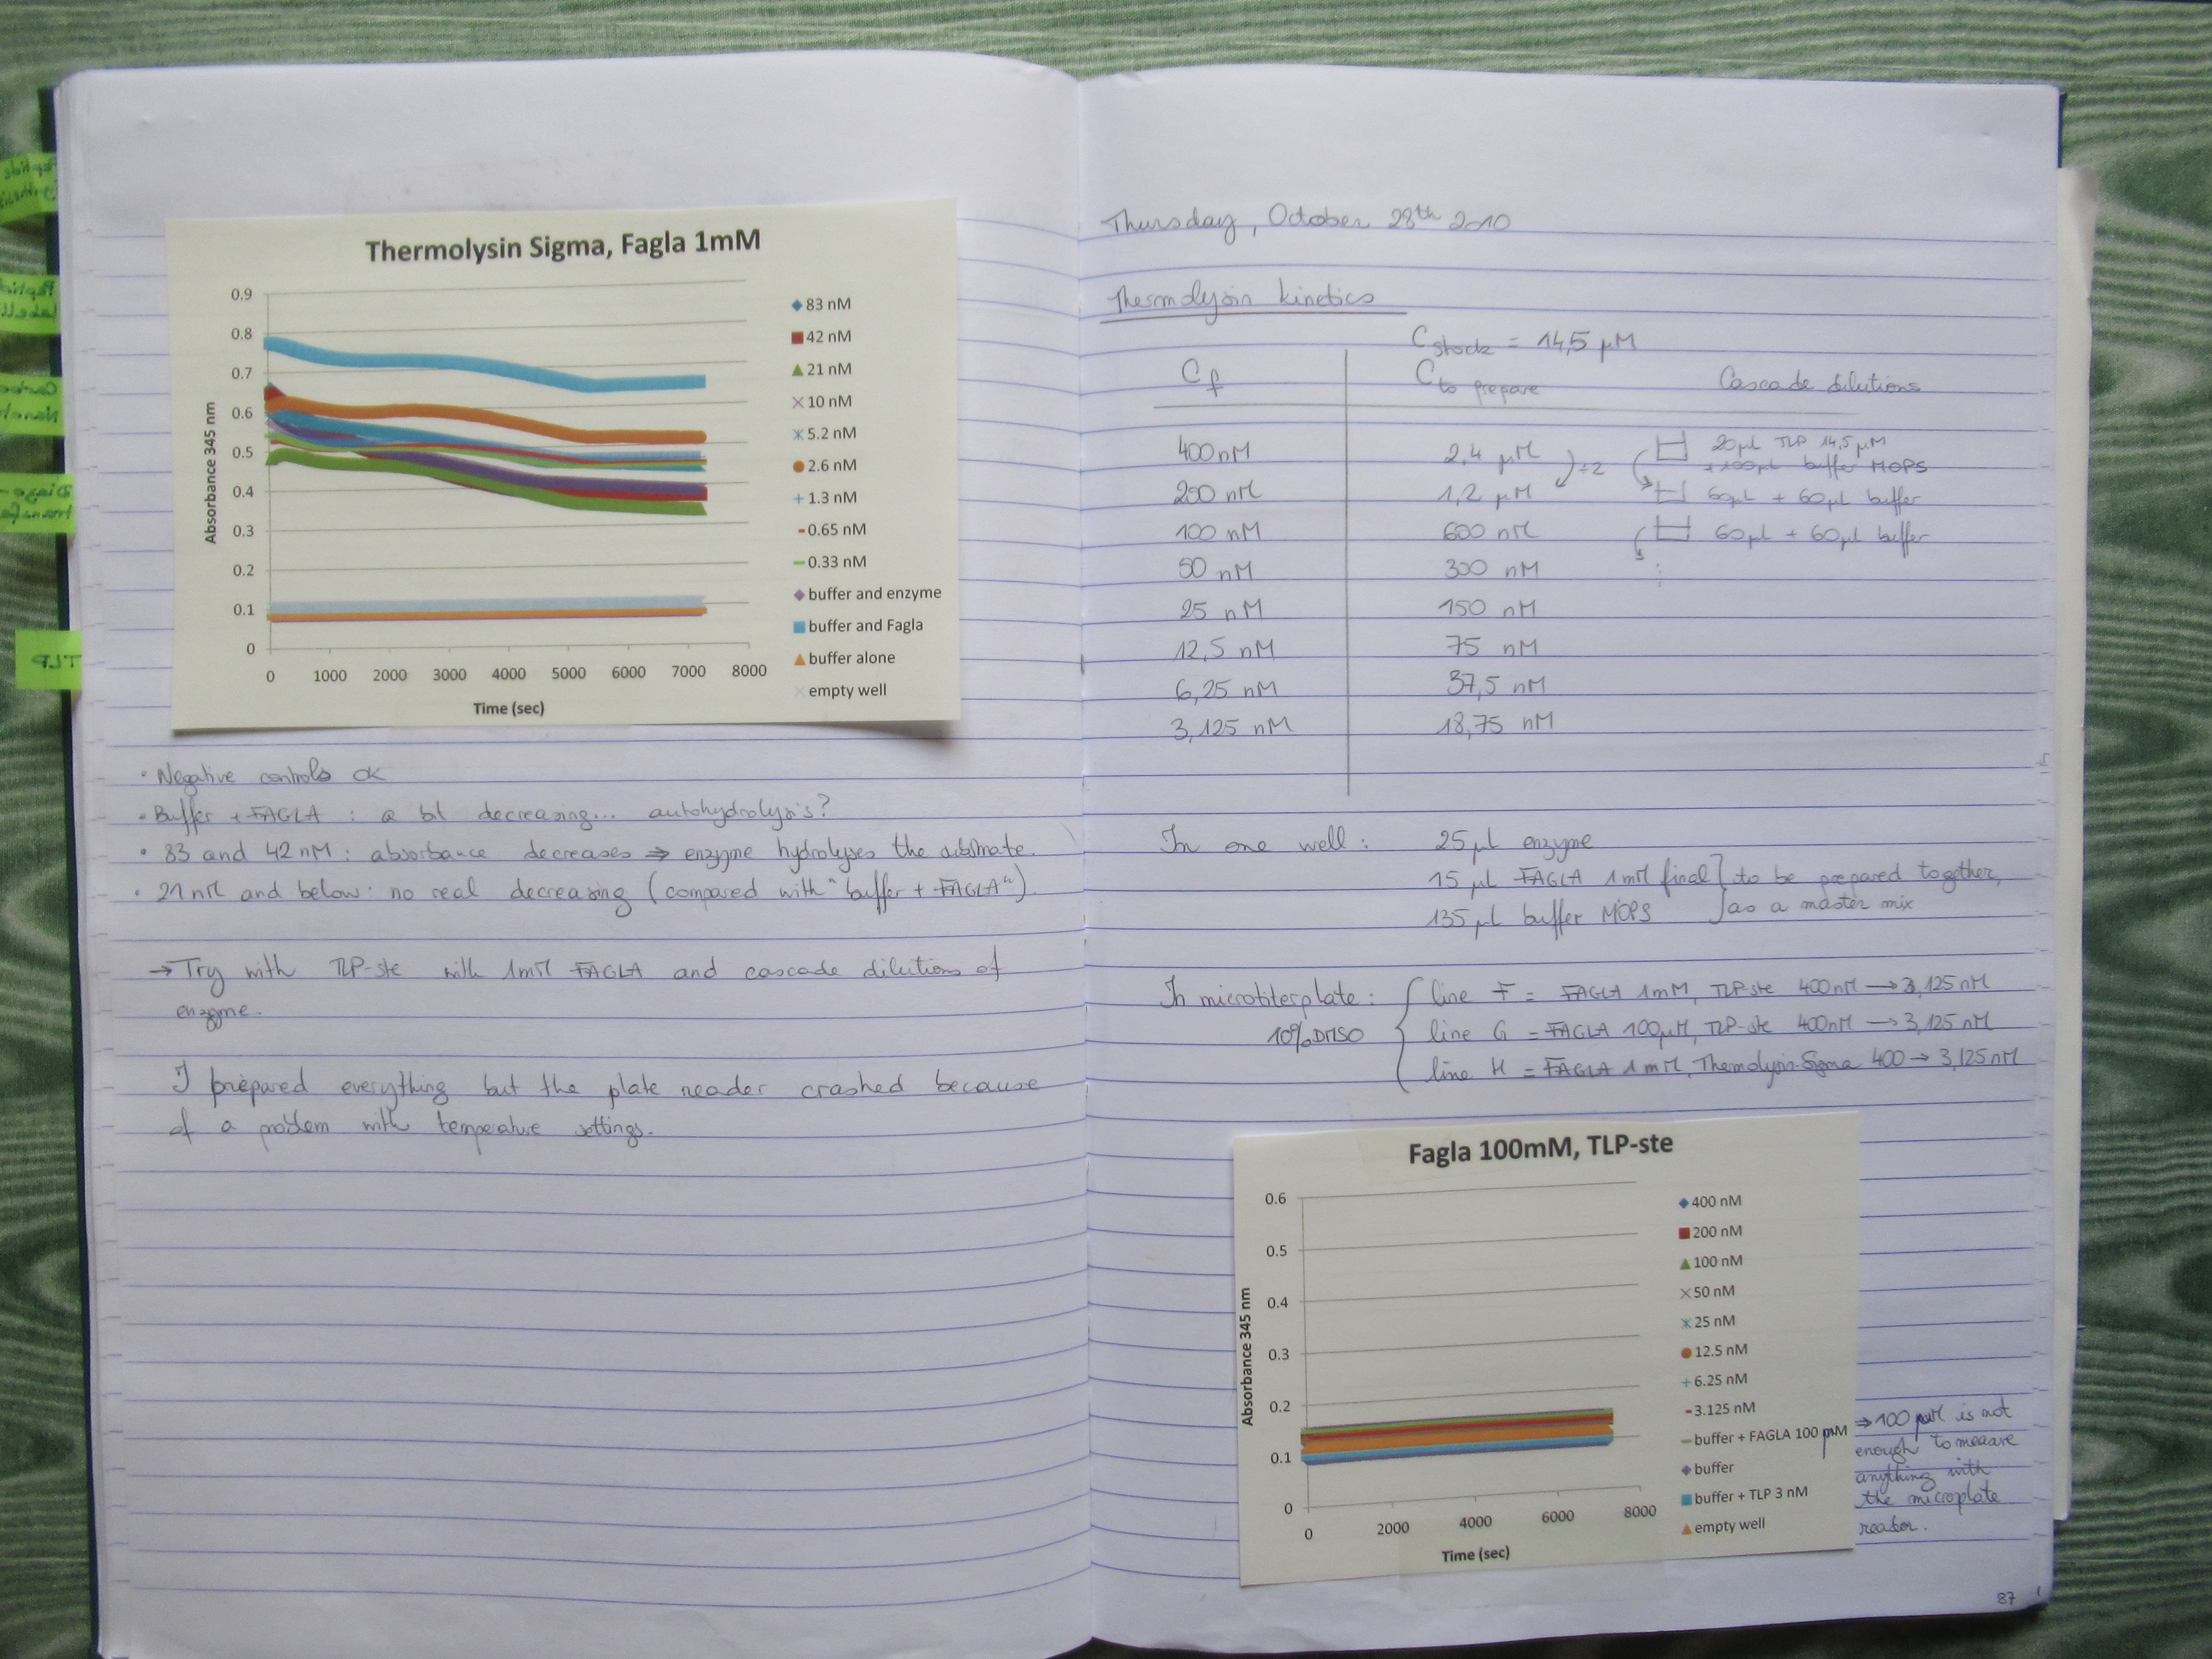 Thermolysin Sigma, Fagla 1mM
0.9
0.8
0.7
0.6
0.5
0.4
0.3
0.2
0.1
0
Absorbance 345 nm
0 1000 2000 3000 4000 5000 6000 7000 8000
Time (sec)
83 nM
42 nM
21 nM
10 nM
5.2 nM
2.6 nM
1.3 nM
0.65 nM
0.33 nM
buffer and enzyme
buffer and Fagla
buffer alone
empty well
• Negative controls OK
• Buffer + FAGLA : a bit decreasing... autohydrolysis?
• 83 and 42 nM : absorbance decreases ⇒ enzyme hydrolyses the substrate.
• 21 nM and below : no real decreasing (compared with "buffer + FAGLA").
→ Try with TLP-ste with 1mM FAGLA and cascade dilutions of
enzyme.
I prepared everything but the plate reader crashed because
of a problem with temperature settings.
TLP
Thursday, October 28th 2010
Thermolysin kinetics
C stock = 14,5 µM
Cf C to prepare Cascade dilutions
400 nM 2,4 µM ÷2 20µL TLP 14,5 µM
+ 100µL buffer MOPS
200 nM 1,2 µM 60µL + 60µL buffer
100 nM 600 nM 60µL + 60µL buffer
50 nM 300 nM
25 nM 150 nM
12,5 nM 75 nM
6,25 nM 37,5 nM
3,125 nM 18,75 nM
In one well : 25 µL enzyme
15 µL FAGLA 1mM final } to be prepared together,
135 µL buffer MOPS } as a master mix
In microtiterplate : line F = FAGLA 1mM, TLP-ste 400nM → 3,125 nM
10% DMSO line G = FAGLA 100µM, TLP-ste 400nM → 3,125 nM
line H = FAGLA 1 mM, Themolysin-Sigma 400 → 3,125 nM
Fagla 100mM, TLP-ste
0.6
0.5
0.4
0.3
0.2
0.1
0
Absorbance 345 nm
0 2000 4000 6000 8000
Time (sec)
400 nM
200 nM
100 nM
50 nM
25 nM
12.5 nM
6.25 nM
3.125 nM
buffer + FAGLA 100 µM
buffer
buffer + TLP 3 nM
empty well
⇒ 100 µM is not
enough to measure
anything with
the microplate
reader.
87